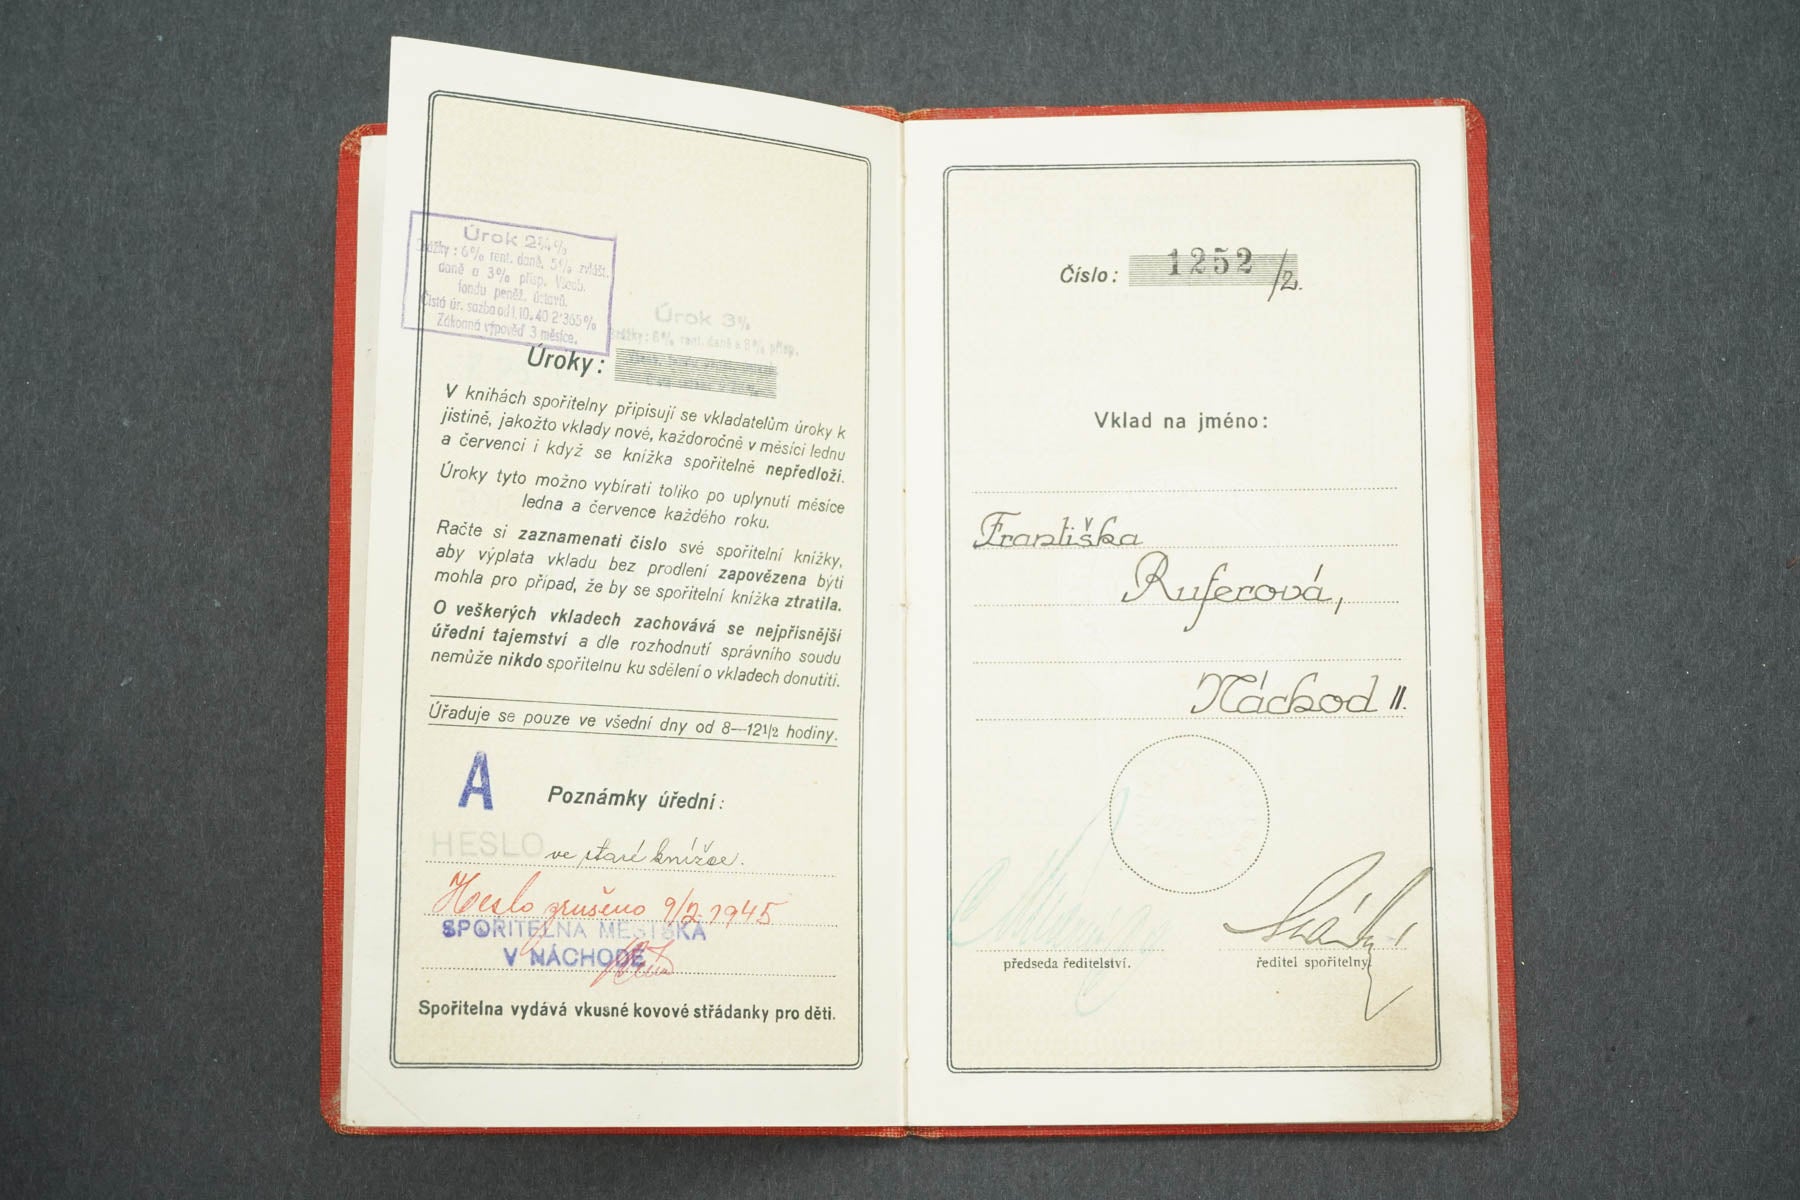 Úrok 2¾%
Srážky: 6% rent. daně, 5% zvlášt.
daně a 3% přísp. Všeob.
fondu peněž. ústavů.
Čistá úr. sazba od 1.10.40 2·365%
Zákonná výpověď 3 měsíce.
Úrok 3%
Srážky: 6% rent. daně a 8% přísp.
Úroky:
V knihách spořitelny připisují se vkladatelům úroky k
jistině, jakožto vklady nové, každoročně v měsíci lednu
a červenci i když se knížka spořitelně nepředloží.
Úroky tyto možno vybírati toliko po uplynutí měsíce
ledna a července každého roku.
Račte si zaznamenati číslo své spořitelní knížky,
aby výplata vkladu bez prodlení zapovězena býti
mohla pro případ, že by se spořitelní knížka ztratila.
O veškerých vkladech zachovává se nejpřísnější
úřední tajemství a dle rozhodnutí správního soudu
nemůže nikdo spořitelnu ku sdělení o vkladech donutiti.
Úřaduje se pouze ve všední dny od 8—12½ hodiny.
A
Poznámky úřední:
HESLO ve staré knížce.
Heslo zrušeno 9/2 1945
SPOŘITELNA MĚSTSKÁ
V NÁCHODĚ
Spořitelna vydává vkusné kovové střádanky pro děti.
Číslo: 1252/2.
Vklad na jméno:
Františka
Ruferová,
Náchod II.
předseda ředitelství.
ředitel spořitelny.